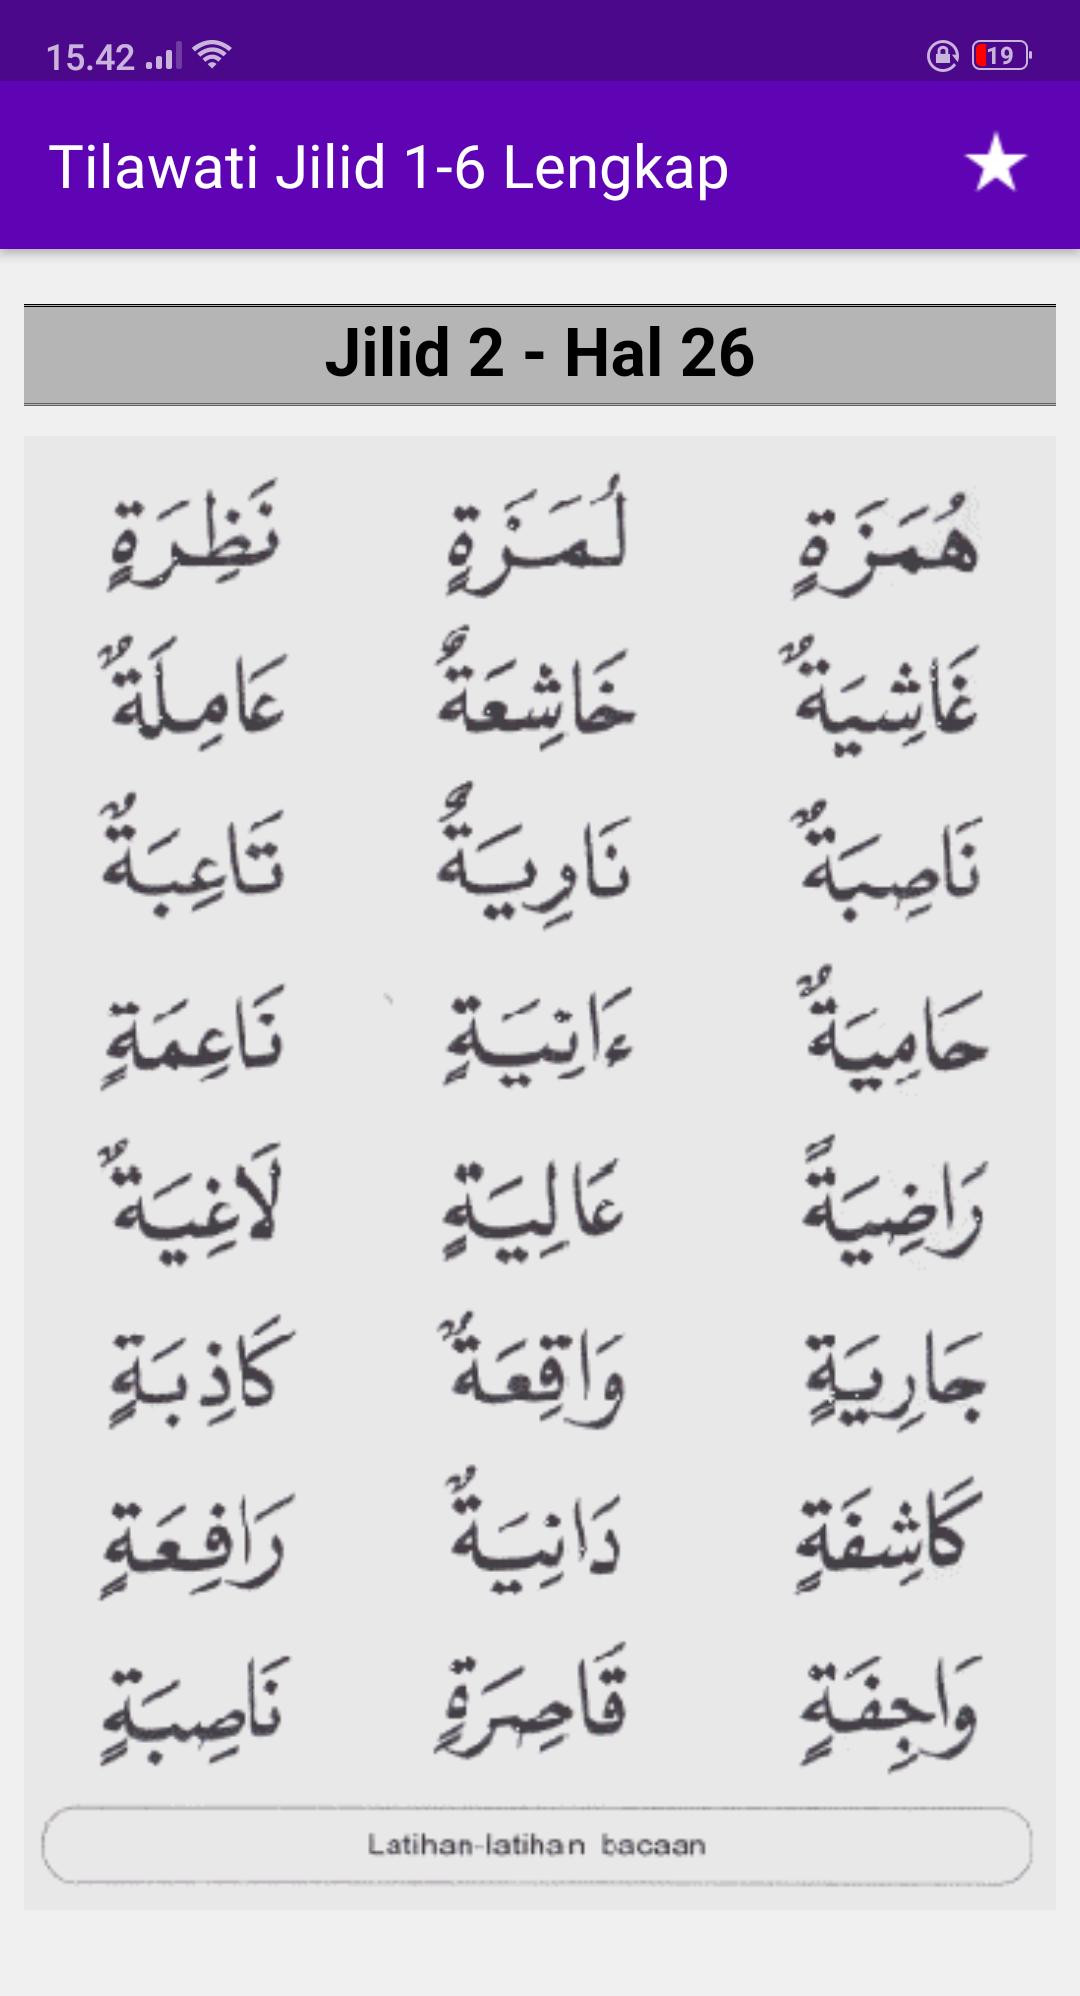 15.42
19
Tilawati Jilid 1-6 Lengkap
Jilid 2 - Hal 26
هُمَزَةٍ لُمَزَةٍ نَظِرَةٍ
غَاشِيَةٌ خَاشِعَةٌ عَامِلَةٌ
نَاصِبَةٌ نَاوِيَةٌ تَاعِبَةٌ
حَامِيَةٌ ءَانِيَةٍ نَاعِمَةٍ
رَاضِيَةً عَالِيَةٍ لَاغِيَةٌ
جَارِيَةٍ وَاقِعَةٌ كَاذِبَةٍ
كَاشِفَةٍ دَانِيَةٌ رَافِعَةٍ
وَاجِفَةٍ قَاصِرَةٍ نَاصِبَةٍ
Latihan-latihan bacaan